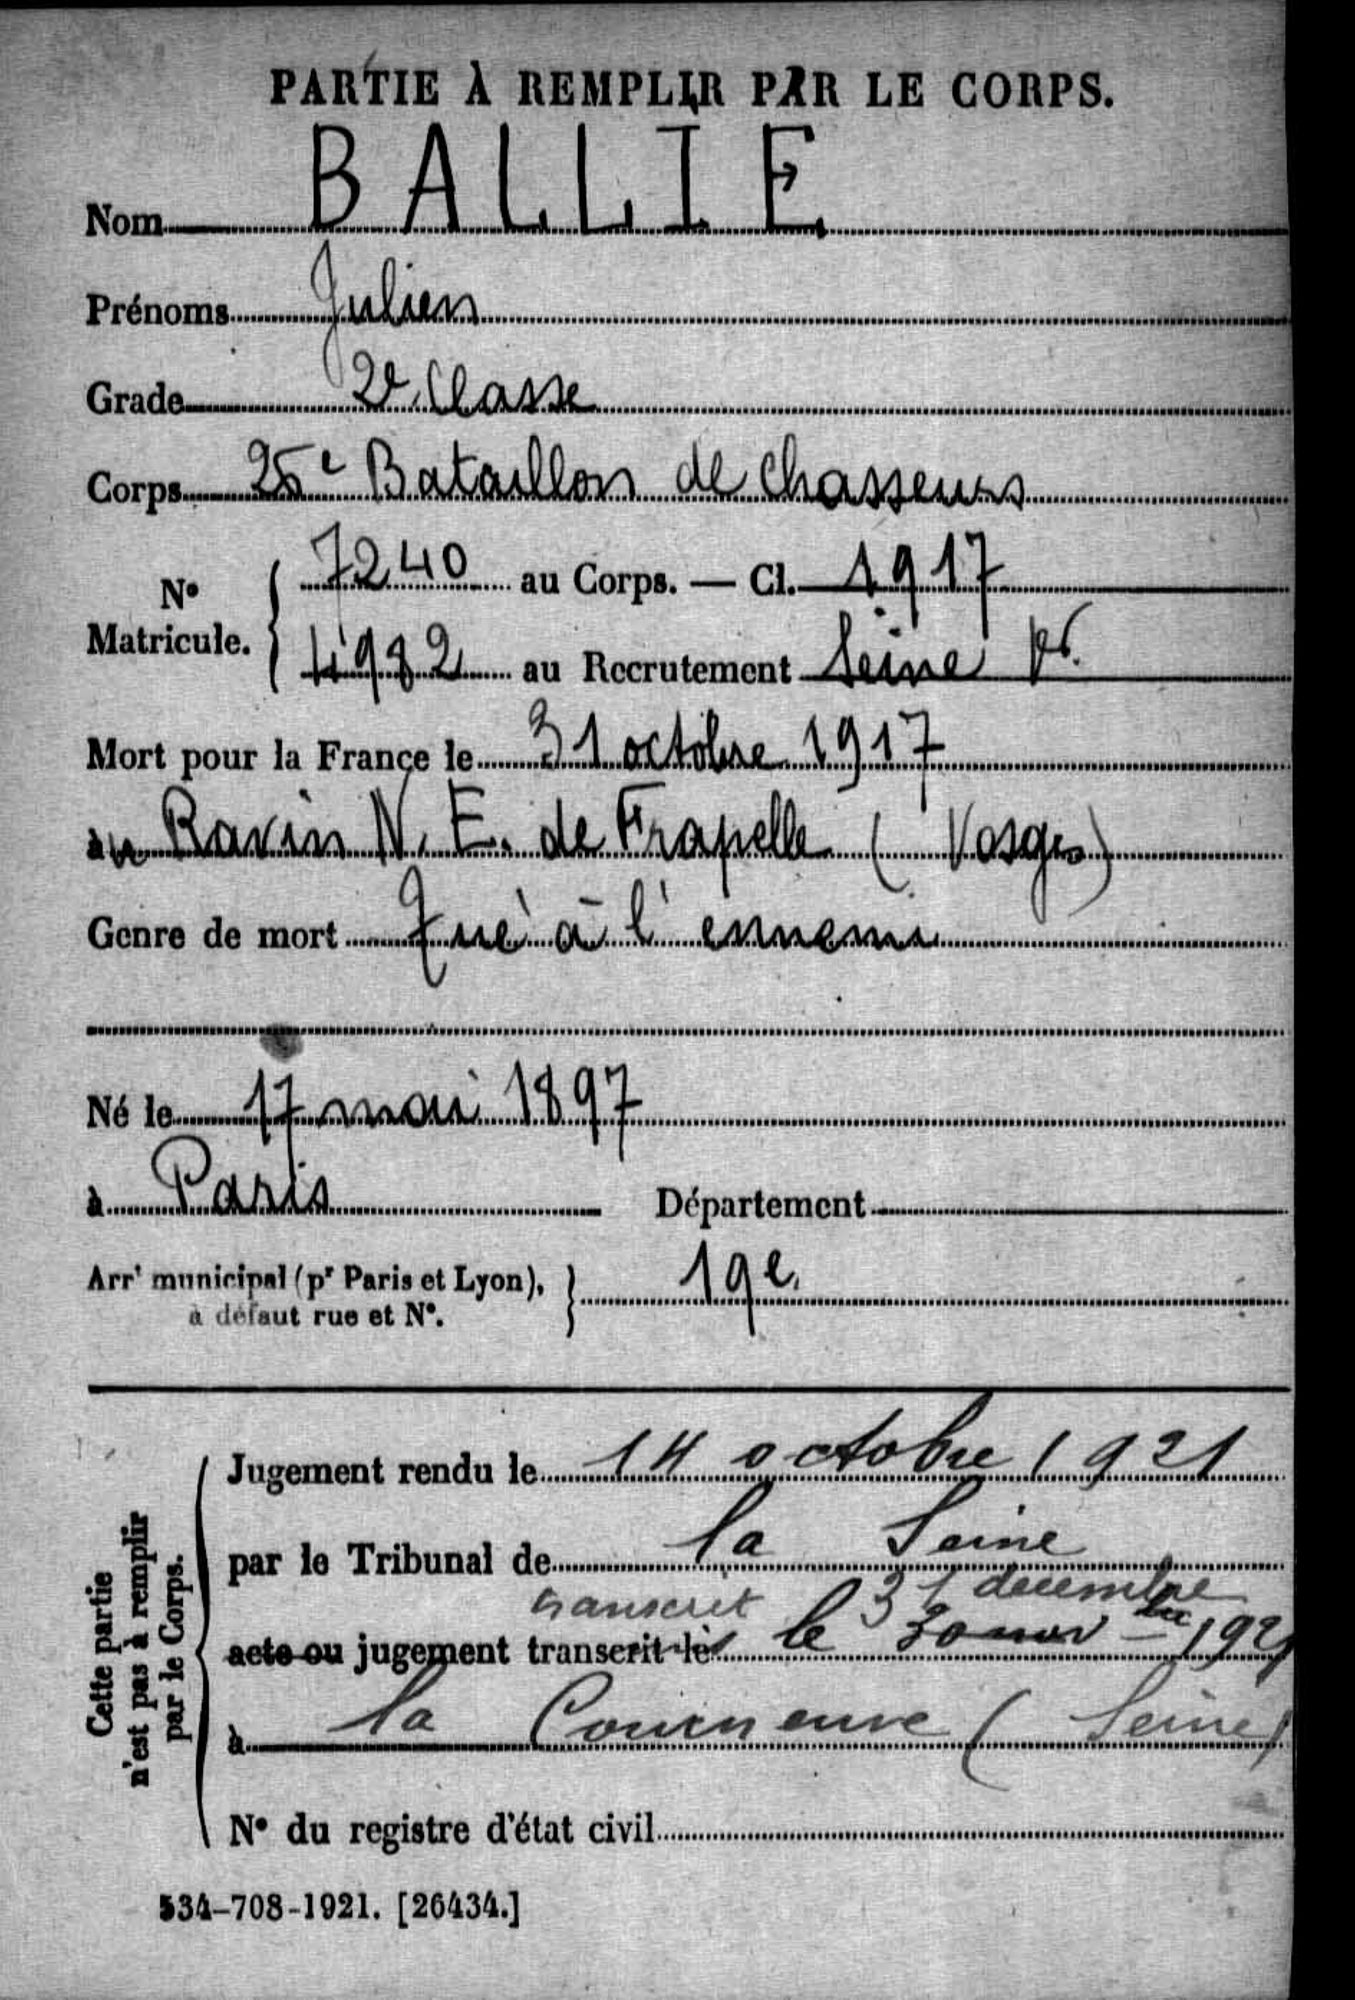 PARTIE À REMPLIR PAR LE CORPS.
Nom BALLIE
Prénoms Julien
Grade 2e Classe
Corps 25e Bataillon de chasseurs
N° Matricule. 7240 au Corps. — Cl. 1917
4982 au Recrutement Seine
Mort pour la France le 31 octobre 1917
au Ravin N. E. de Frapelle (Vosges)
Genre de mort Tué à l'ennemi
Né le 17 mai 1897
à Paris Département
Arrt municipal (pr Paris et Lyon), à défaut rue et N°. 19e
Cette partie n'est pas à remplir par le Corps.
Jugement rendu le 14 octobre 1921
par le Tribunal de la Seine
transcrit 31 decembre
acte ou jugement transcrit le le 30 nov 1921
à la Courneuve (Seine)
N° du registre d'état civil
534-708-1921. [26434.]